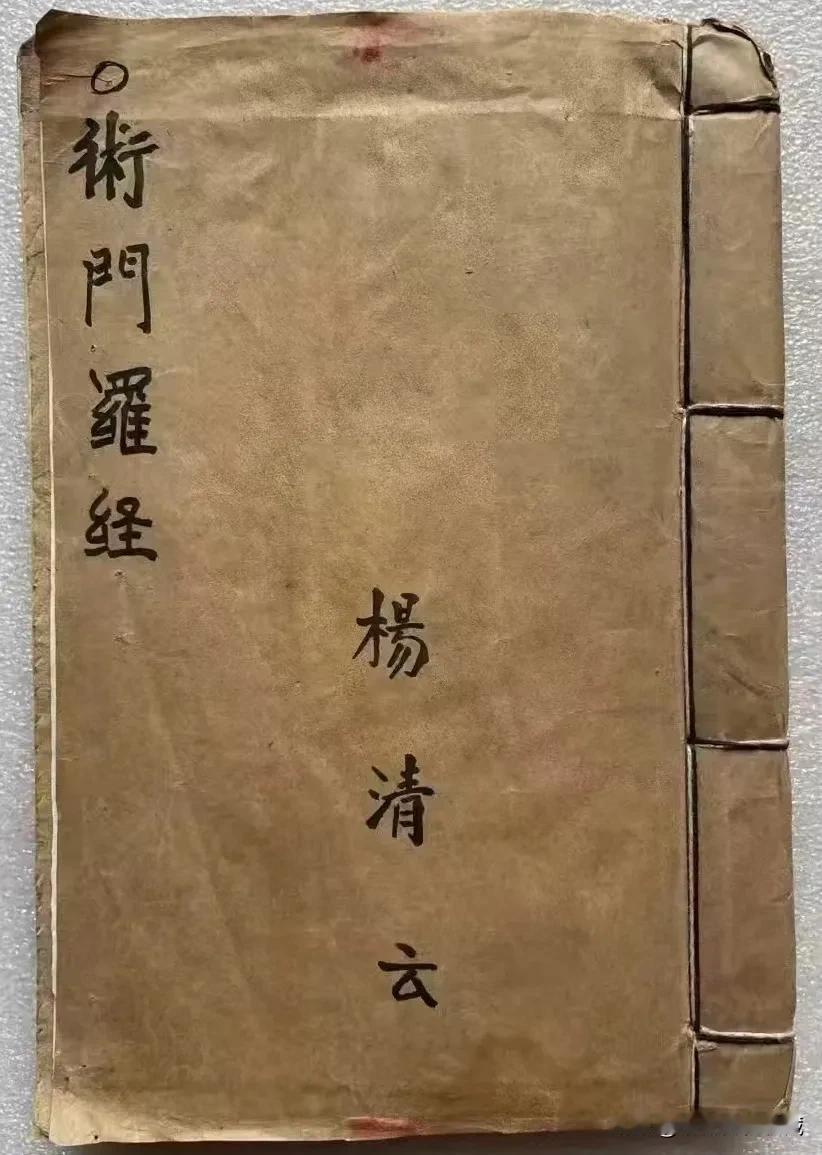 ○術門羅経
楊清云